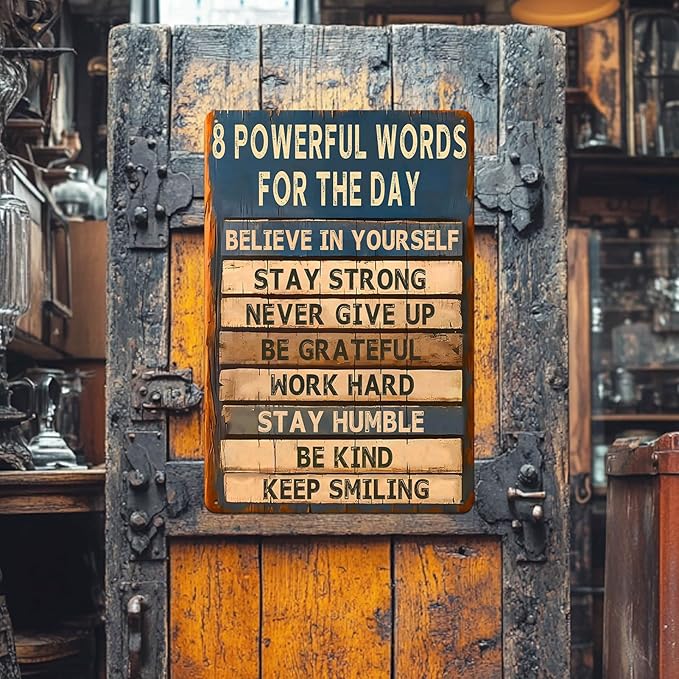 8 POWERFUL WORDS
FOR THE DAY
BELIEVE IN YOURSELF
STAY STRONG
NEVER GIVE UP
BE GRATEFUL
WORK HARD
STAY HUMBLE
BE KIND
KEEP SMILING